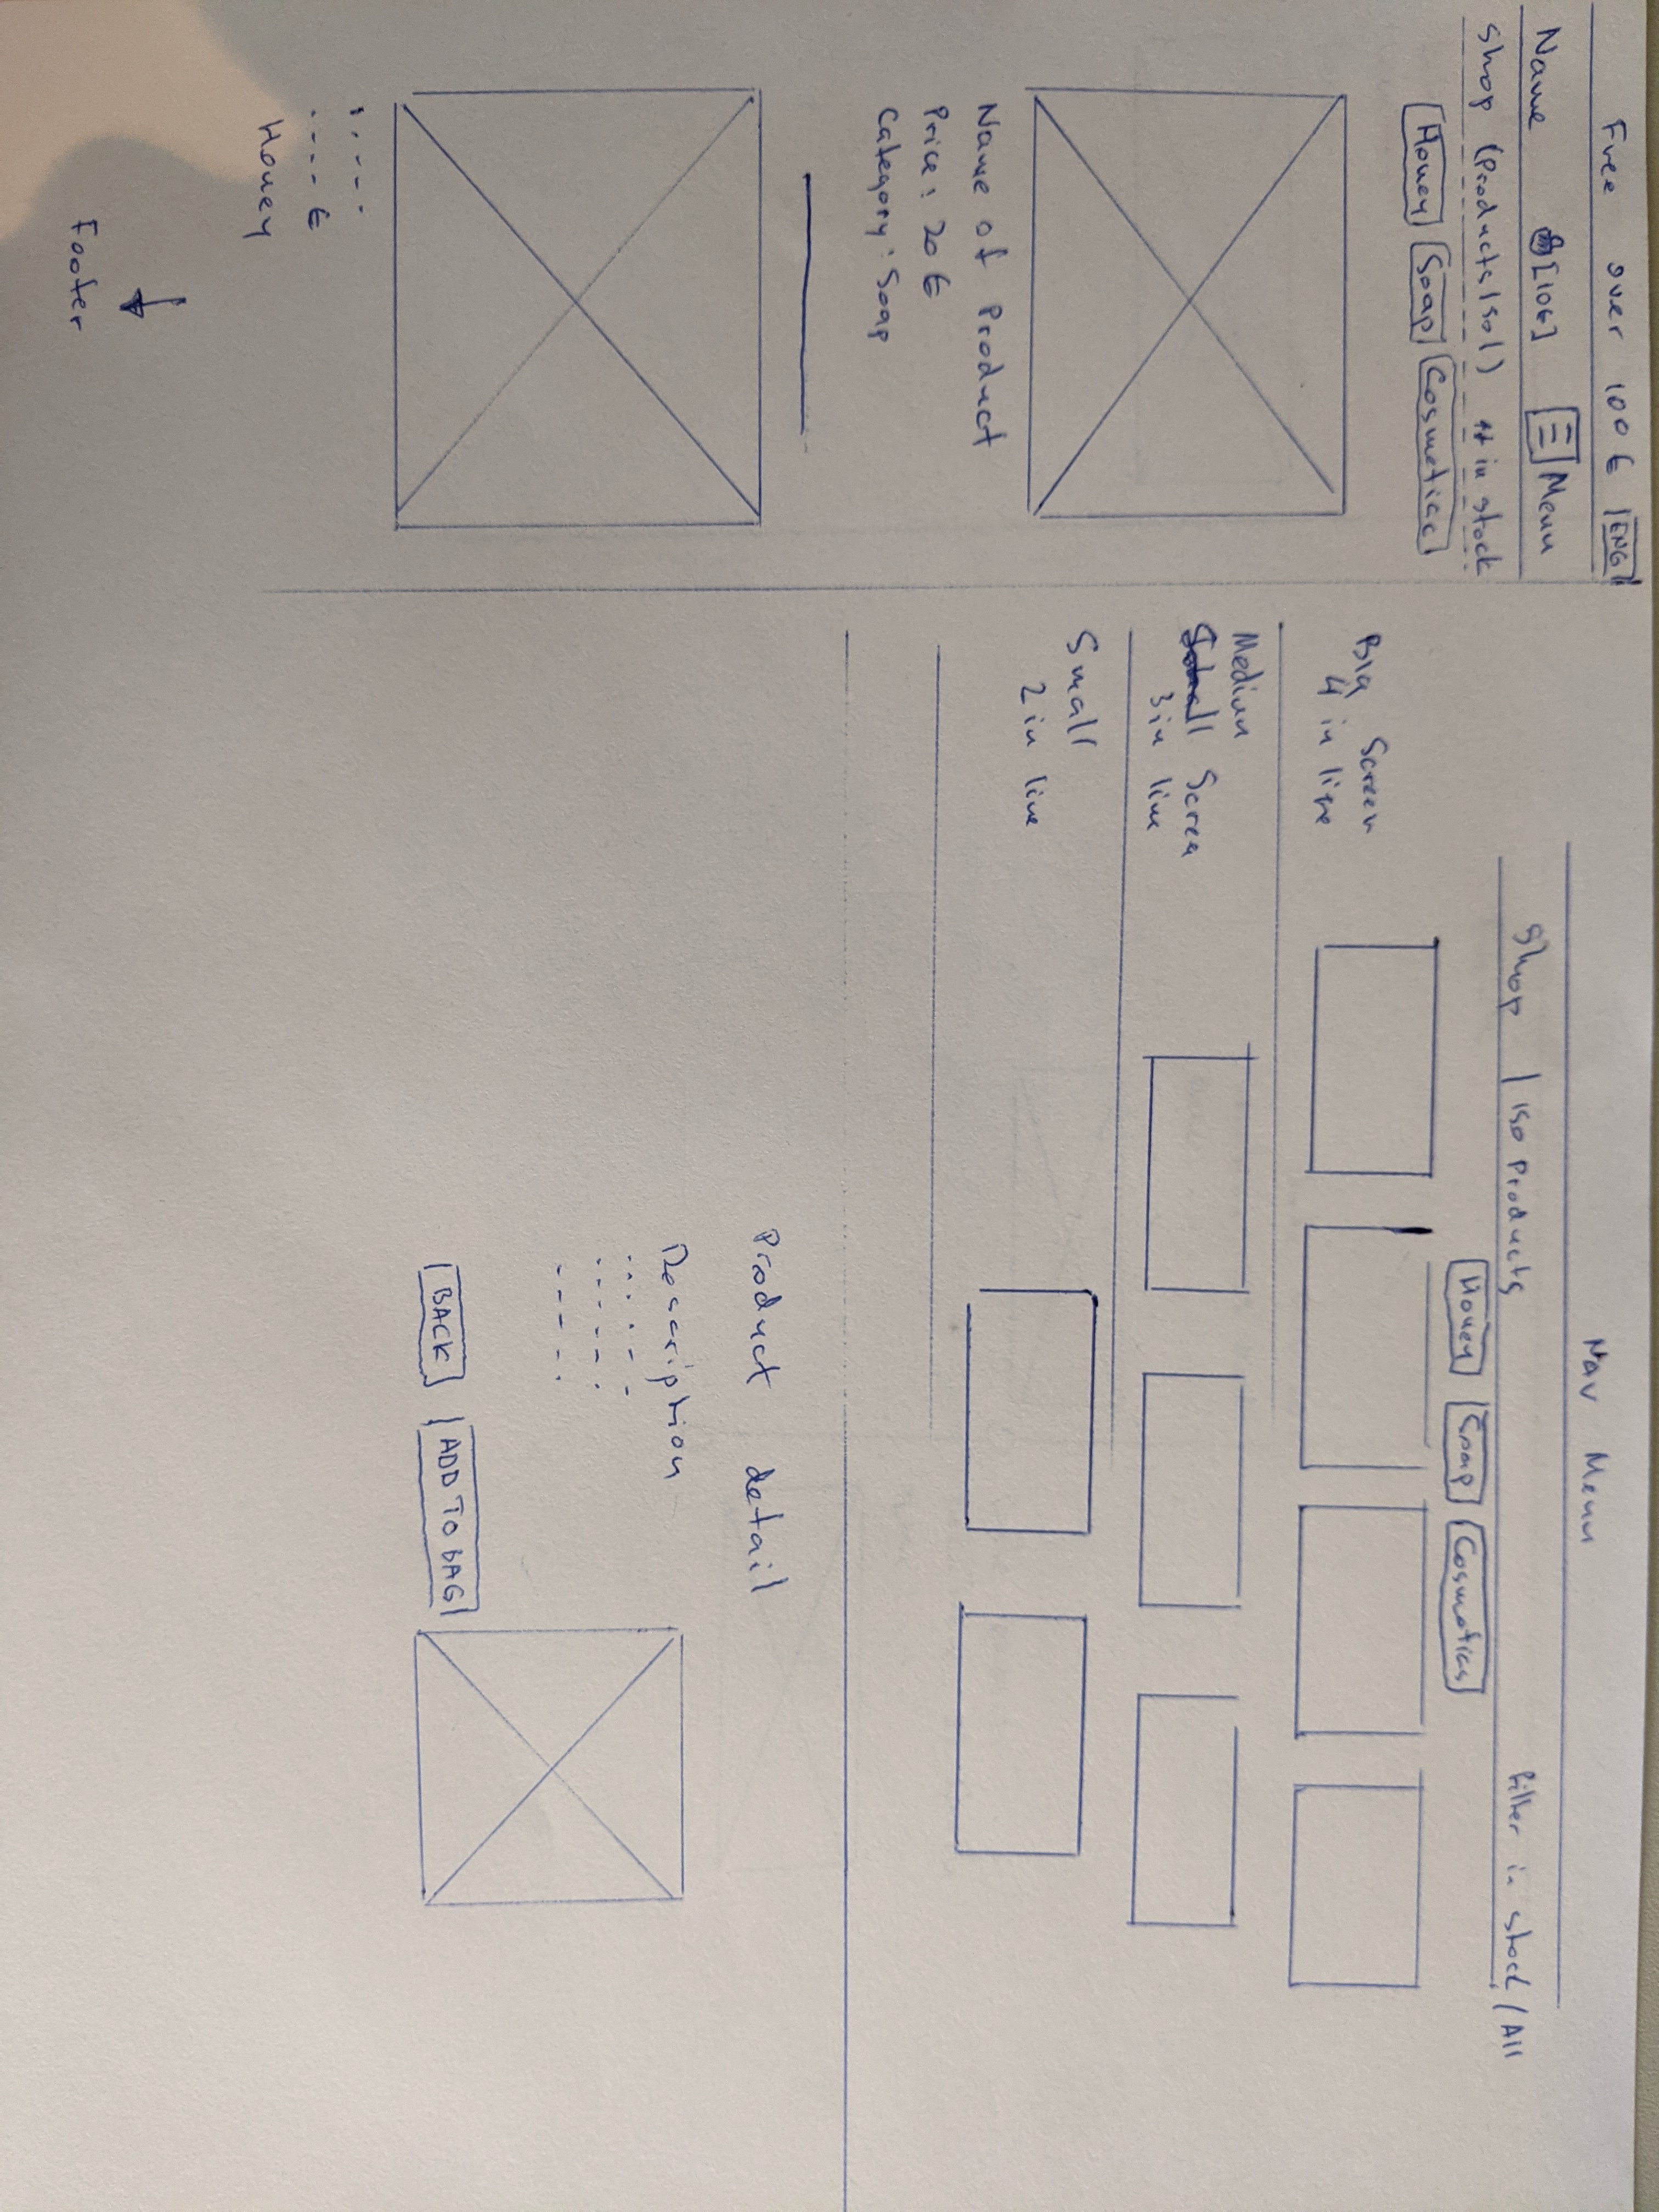 Free over 100 € ENG
Name [10€] Menu
Shop (Products 150) in stock
Honey Soap Cosmetics
Name of Product
Price: 20 €
Category: Soap
€
Honey
Footer
Nav Menu
Shop | 150 Products Filter in stock / All
Honey Soap Cosmetics
Big Screen
4 in line
Medium
Screen
3 in line
Small
2 in line
Product detail
Description
BACK ADD TO BAG